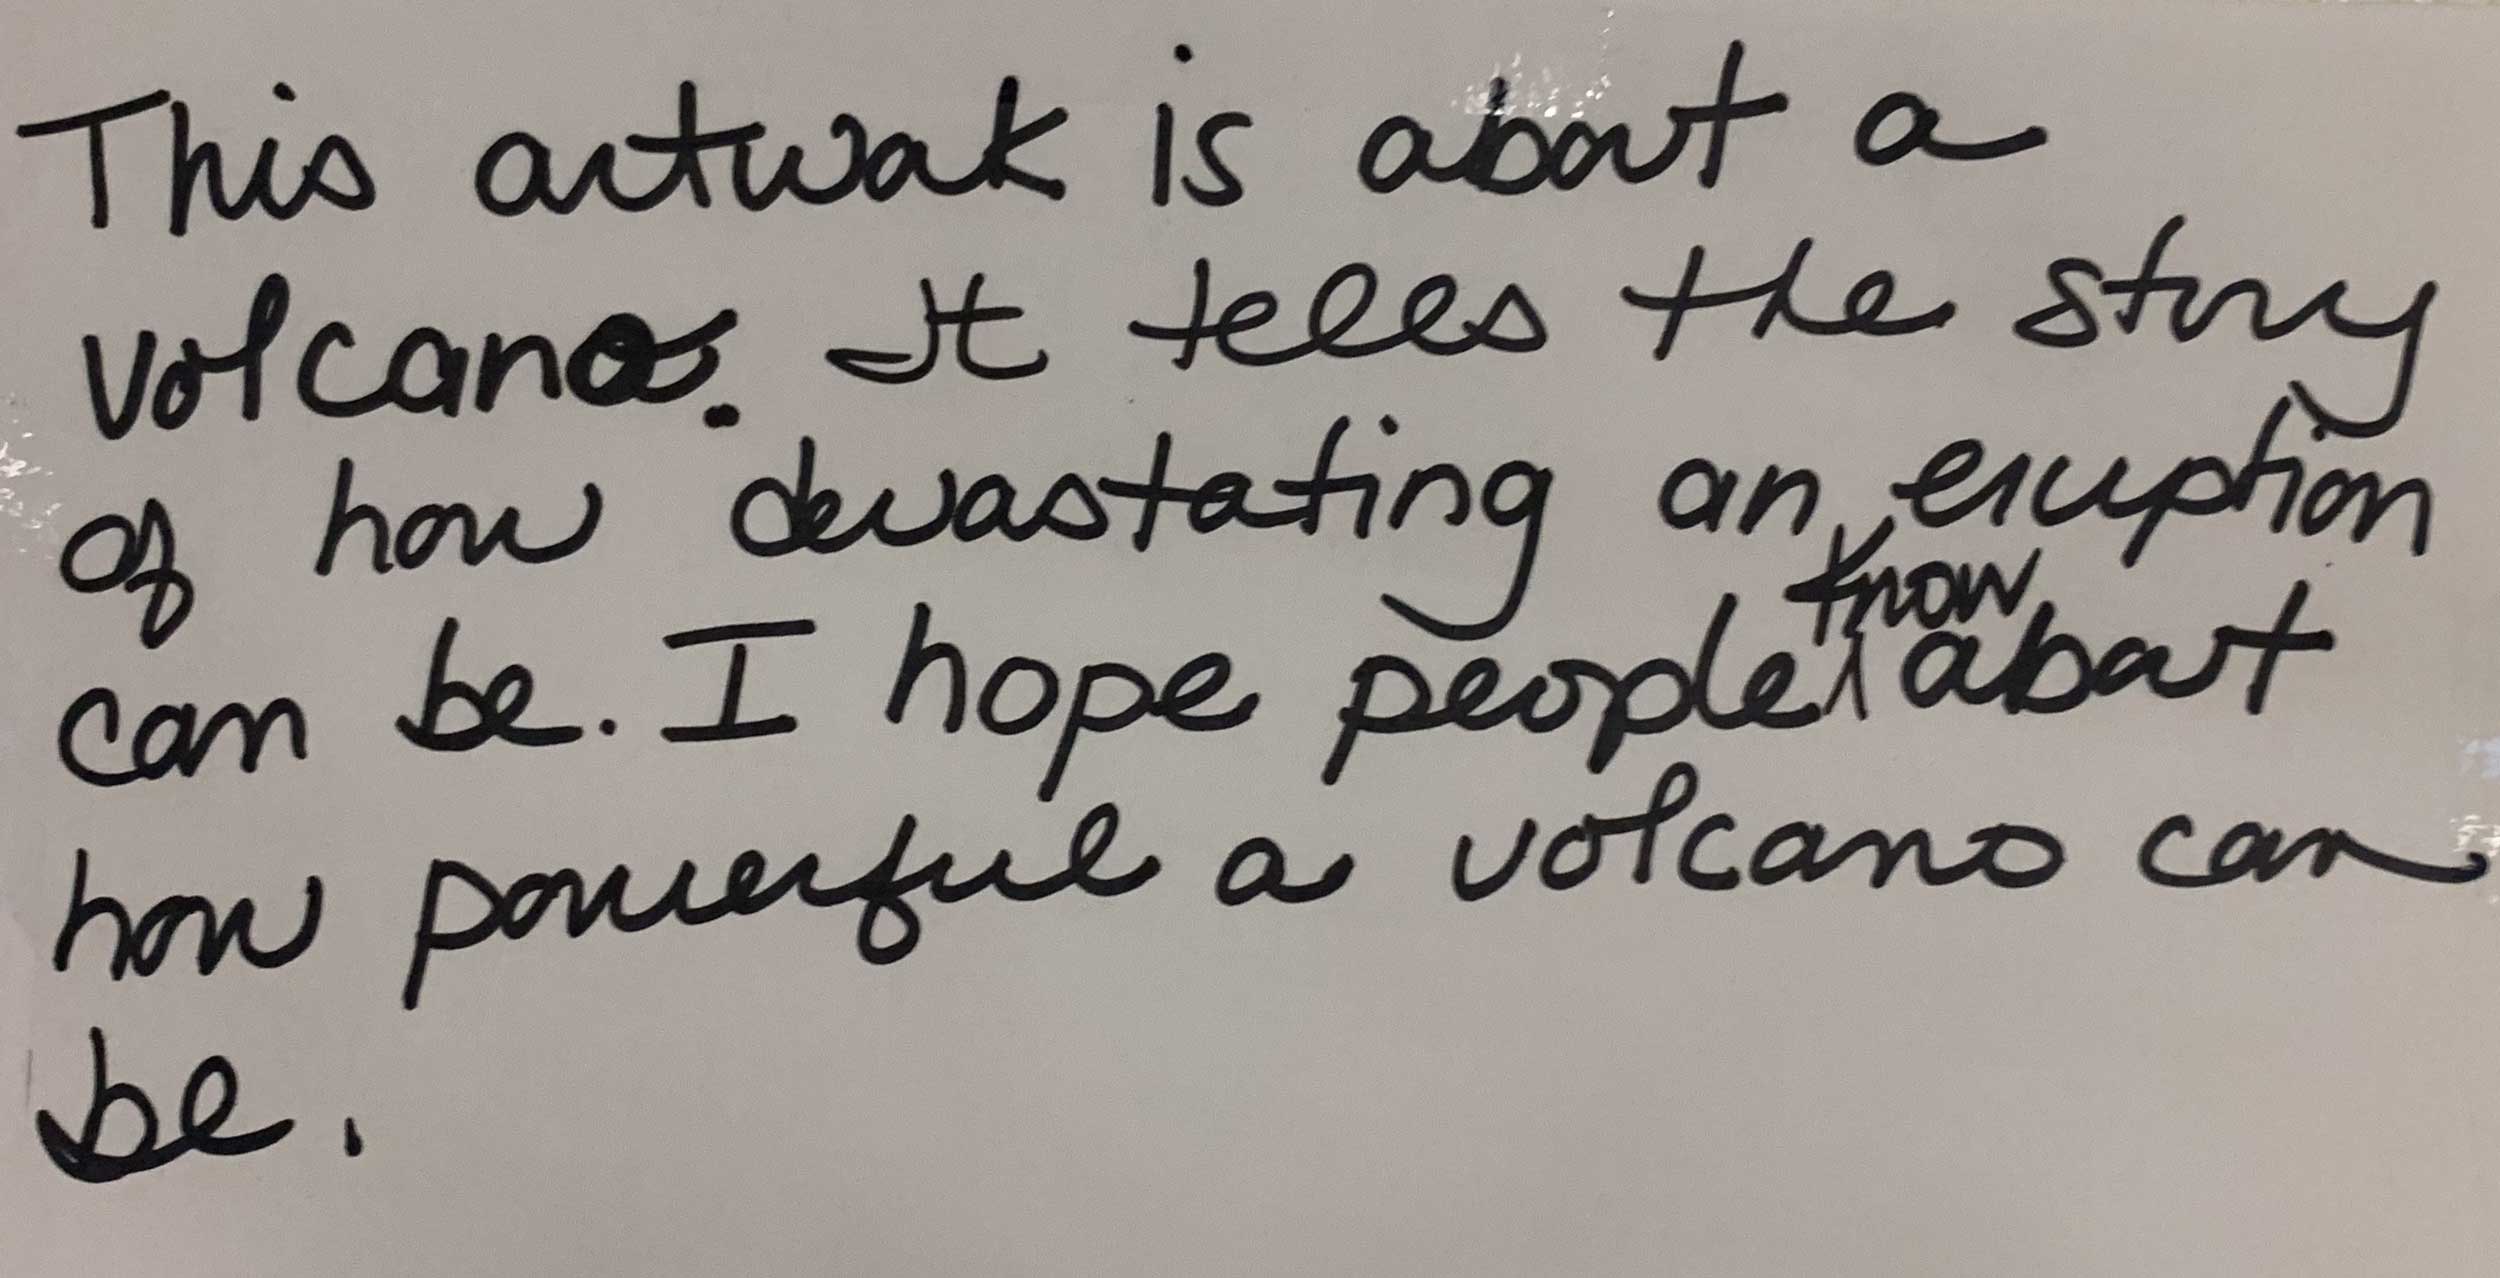 This artwork is about a
volcano. It tells the story
of how devastating an eruption
can be. I hope people know about
how powerful a volcano can
be.